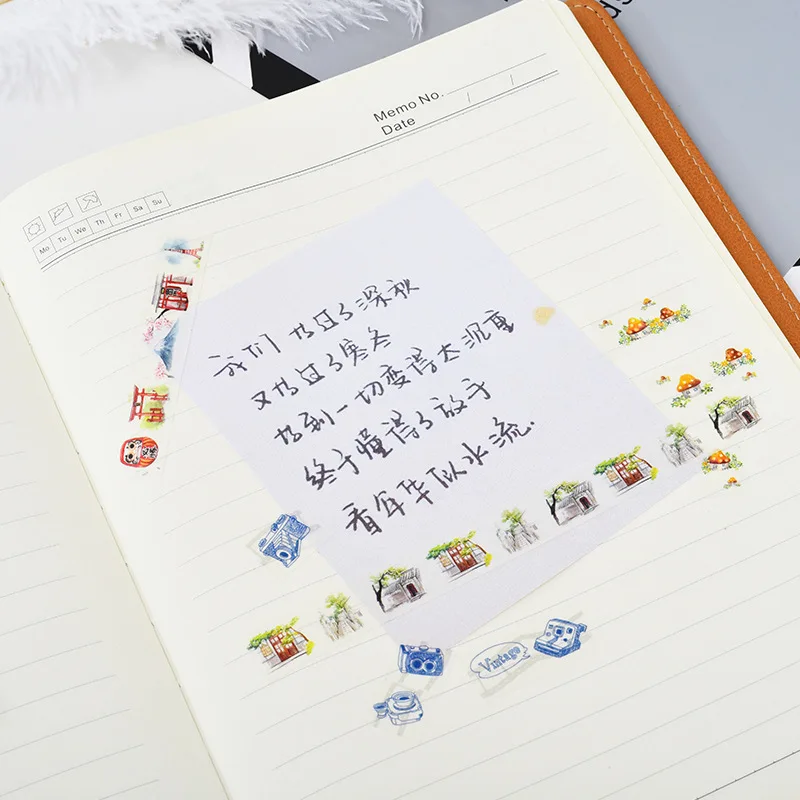 Memo No.
Date / /
Mo Tu We Th Fr Sa Su
我们 扛过了深秋
又扛过了寒冬
扛到一切变得太沉重
终于懂得了放手
看年华似水流.
Vintage